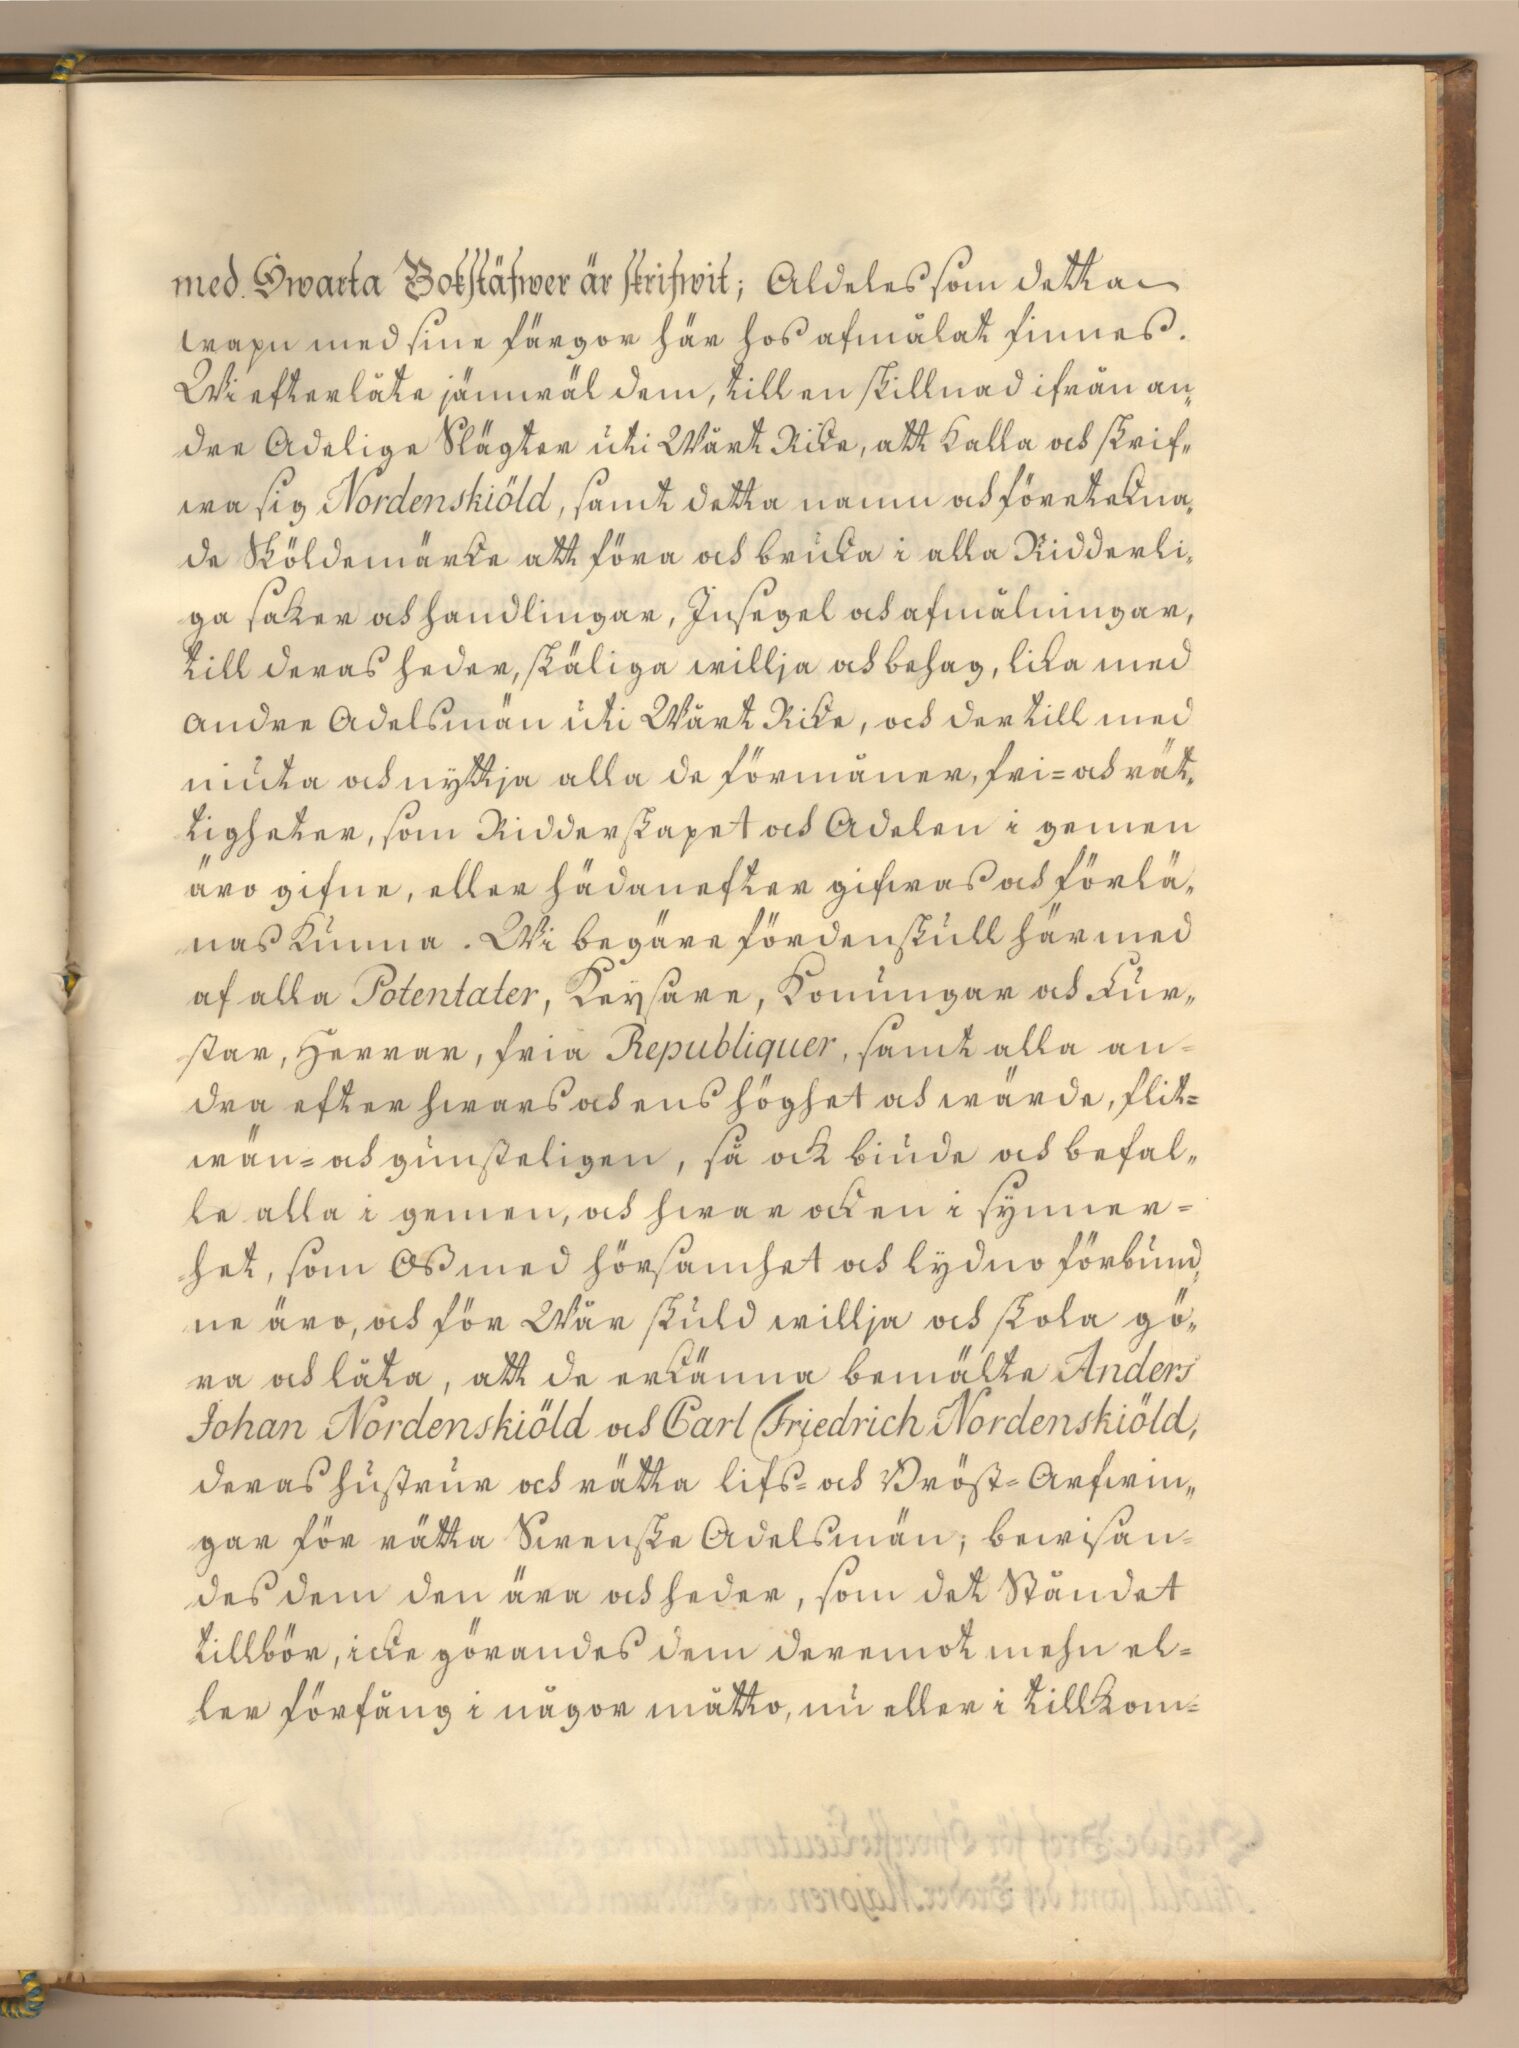 med Swarta Bokstäfwer är skrifwit; Aldeles som detta
wapn med sine färgor här hos afmålat finnes.
Wi efterlåte jämwäl dem, till en skillnad ifrån an„
dre Adelige Slägter uti Wårt Rike, att kalla och skrif„
wa sig Nordenskiöld, samt detta namn och företekna„
de Sköldemärke att föra och bruka i alla Ridderli„
ga saker och handlingar, Insegel och afmålningar,
till deras heder, skäliga willja och behag, lika med
andre Adelsmän uti Wårt Rike, och der till med
niuta och nyttja alla de förmåner, fri= och rät„
tigheter, som Ridderskapet och Adelen i gemen
äro gifne, eller hädanefter gifwas och förlä„
nas kunna. Wi begäre fördenskull här med
af alla Potentater, Keysare, Konungar och Fur„
star, Herrar, fria Republiquer, samt alla an=
dra efter hwars och ens höghet och wärde, flit=
wän= och gunsteligen, så ock biude och befal„
le alla i gemen, och hwar ock en i synner=
het, som Oß med hörsamhet och lydno förbund„
ne äro, och för Wår skuld willja och skola gö„
ra och låta, att de erkänna bemälte Anders
Johan Nordenskiöld och Carl Friedrich Nordenskiöld,
deras hustrur och rätta lifs= och Bröst=Arfwin„
gar för rätta Swenske Adelsmän; bewisan=
des dem den ära och heder, som det Ståndet
tillbör, icke görandes dem deremot mehn el=
ler förfång i någor måtto, nu eller i tillkom=